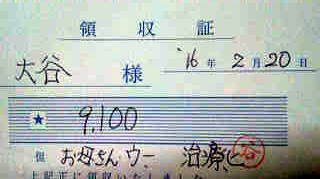 領収証
大谷 様 '16年2月20日
★ 9,100
但 お母さん ウー 治療ヒ 谷
上記正に領収いたしました